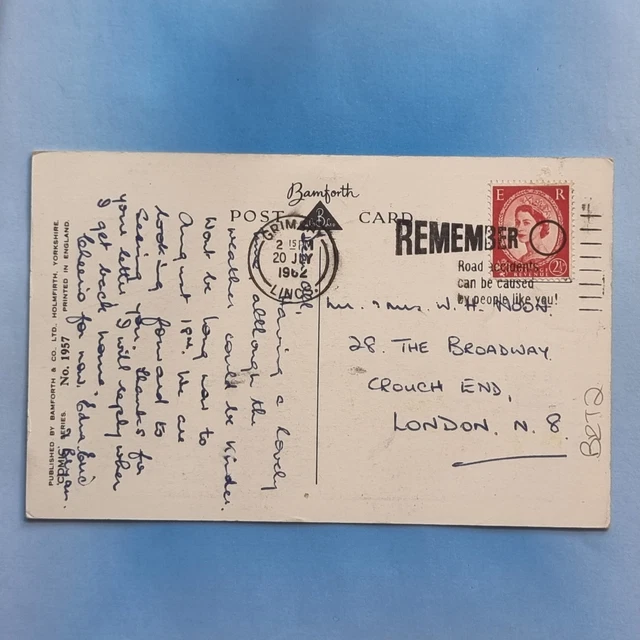 Bamforth
POST CARD
GRIMSBY
2 15PM
20 JLY
1962
LINCS
REMEMBER
Road accidents
can be caused
by people like you!
E R
2½
Mr. & Mrs. W. H. NOON.
28. THE BROADWAY.
CROUCH END,
LONDON. N. 8.
B2T2
Having a lovely
time although the
weather could be kinder.
Wont be long now to
August 18th. We are
looking forward to
Seeing you. Thanks for
your letter, I will reply when
I get back home.
Cheerio for now, Edna Eric
& Bryan.
PUBLISHED BY BAMFORTH & CO. LTD., HOLMFIRTH, YORKSHIRE.
SERIES No. 1957 PRINTED IN ENGLAND.